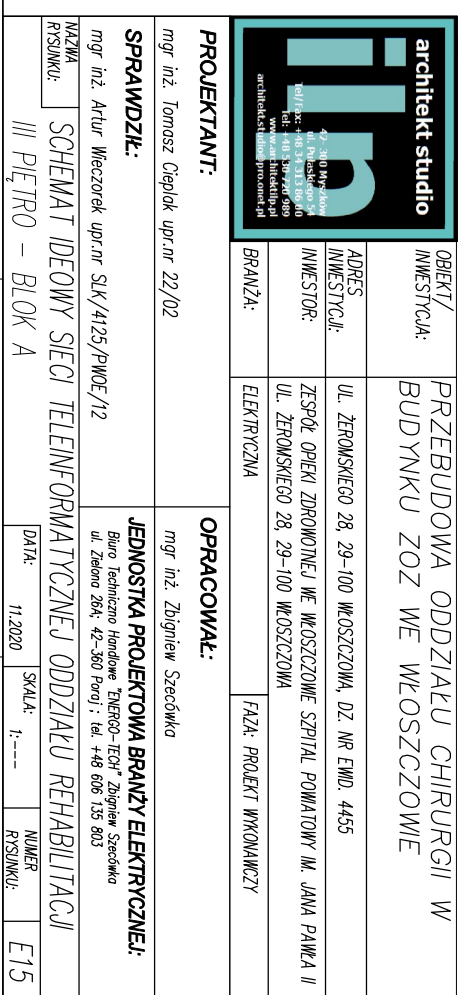 architekt studio
ilp
42-300 Myszków
ul. Pułaskiego 54
Tel/Fax: +48 34 313 86 00
Tel: +48 530 720 989
www.architektilp.pl
architekt.studio@pro.onet.pl
OBIEKT/
INWESTYCJA:
PRZEBUDOWA ODDZIAŁU CHIRURGII W
BUDYNKU ZOZ WE WŁOSZCZOWIE
ADRES
INWESTYCJI:
UL. ŻEROMSKIEGO 28, 29-100 WŁOSZCZOWA, DZ. NR EWID. 4455
INWESTOR:
ZESPÓŁ OPIEKI ZDROWOTNEJ WE WŁOSZCZOWIE SZPITAL POWIATOWY IM. JANA PAWŁA II
UL. ŻEROMSKIEGO 28, 29-100 WŁOSZCZOWA
BRANŻA:
ELEKTRYCZNA
FAZA: PROJEKT WYKONAWCZY
PROJEKTANT:
mgr inż. Tomasz Cieplak upr.nr 22/02
OPRACOWAŁ:
mgr inż. Zbigniew Szecówka
SPRAWDZIŁ:
mgr inż. Artur Wieczorek upr.nr SLK/4125/PWOE/12
JEDNOSTKA PROJEKTOWA BRANŻY ELEKTRYCZNEJ:
Biuro Techniczno Handlowe "ENERGO-TECH" Zbigniew Szecówka
ul. Zielona 26A; 42-360 Poraj ; tel. +48 606 135 803
NAZWA
RYSUNKU:
SCHEMAT IDEOWY SIECI TELEINFORMATYCZNEJ ODDZIAŁU REHABILITACJI
III PIĘTRO - BLOK A
DATA: 11.2020
SKALA: 1:---
NUMER
RYSUNKU:
E15